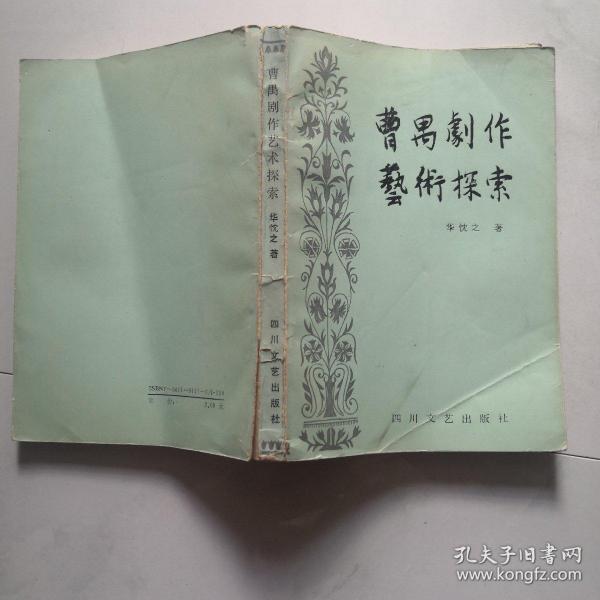 曹禺劇作
藝術探索
华忱之 著
四川文艺出版社
曹禺剧作艺术探索
华忱之 著
四川文艺出版社
定价：
孔夫子旧书网
www.kongfz.com